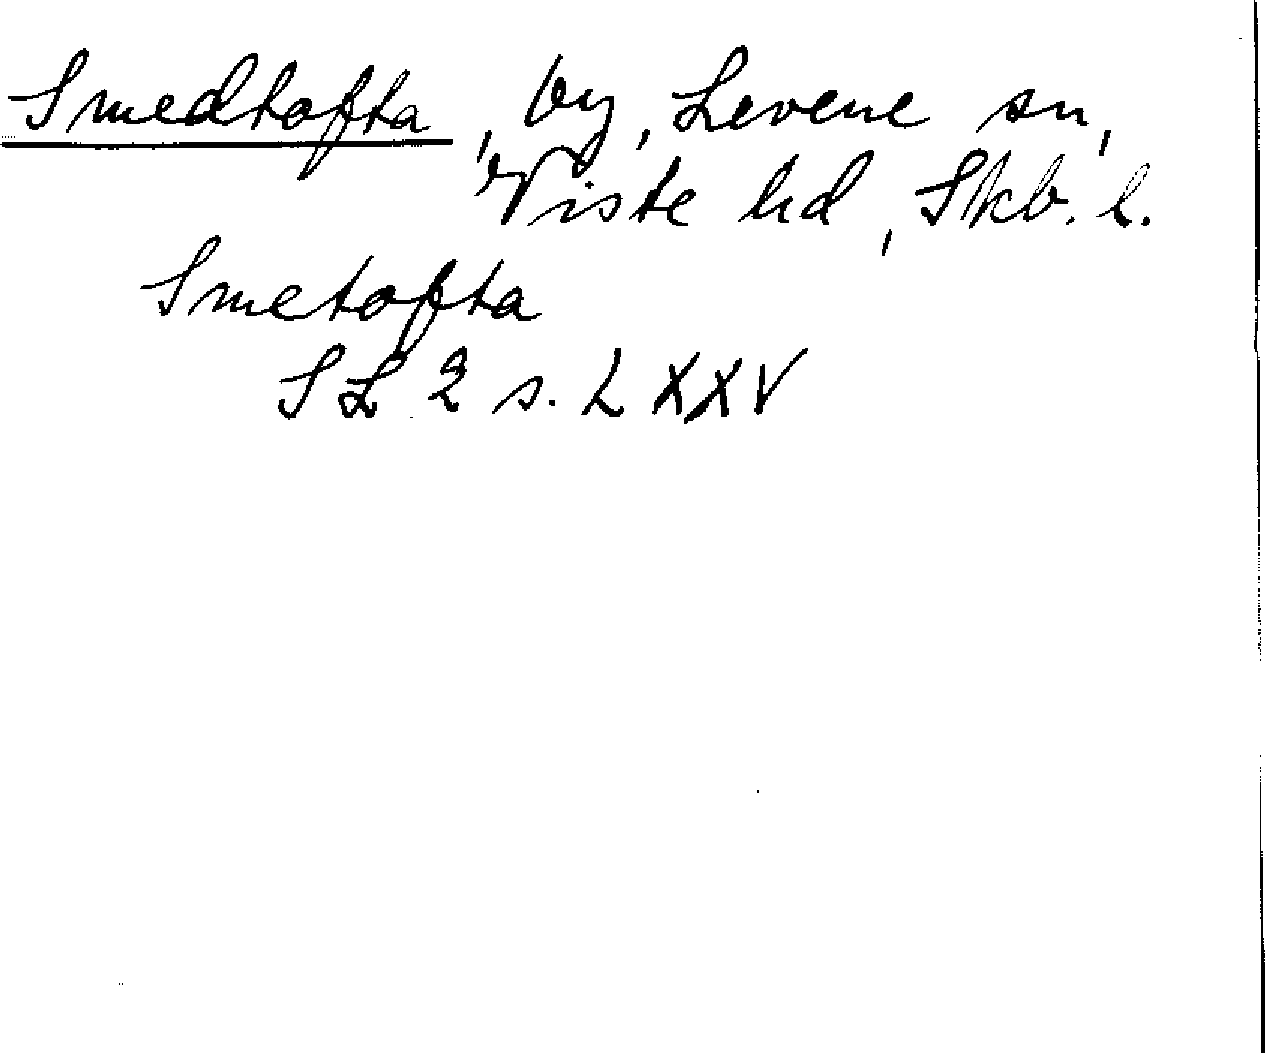 Smedtofta, by, Levene sn,
Viste hd, Skb. l.
Smetofta
SL 2 s. LXXV